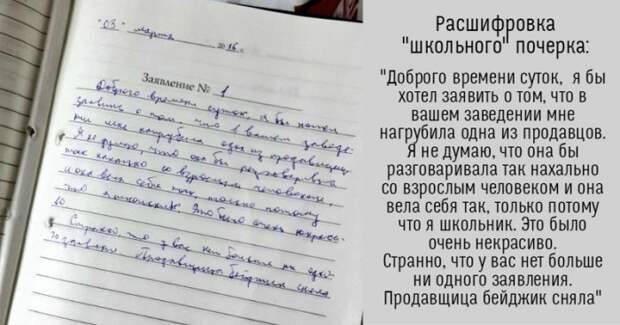 "03" марта 2016 г.
Заявление № 1
Доброго времени суток, я бы хотел
заявить о том, что в вашем заведе-
нии мне нагрубила одна из продавцов.
Я не думаю, что она бы разговаривала
так нахально со взрослым человеком,
и она вела себя так, только потому
что я школьник. Это было очень некраси-
во
Странно, что у вас нет больше ни одно-
го заявления. Продавщица бейджик сняла
Расшифровка
"школьного" почерка:
"Доброго времени суток, я бы
хотел заявить о том, что в
вашем заведении мне
нагрубила одна из продавцов.
Я не думаю, что она бы
разговаривала так нахально
со взрослым человеком и она
вела себя так, только потому
что я школьник. Это было
очень некрасиво.
Странно, что у вас нет больше
ни одного заявления.
Продавщица бейджик сняла"